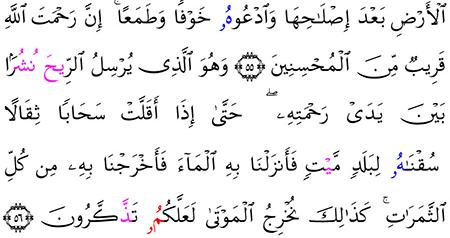 الْأَرْضِ بَعْدَ إِصْلَٰحِهَا وَادْعُوهُۥ خَوْفًا وَطَمَعًا ۚ إِنَّ رَحْمَتَ اللَّهِ
قَرِيبٌ مِّنَ الْمُحْسِنِينَ ﴿٥٥﴾ وَهُوَ الَّذِى يُرْسِلُ الرِّيحَ نُشُرًۢا
بَيْنَ يَدَىْ رَحْمَتِهِۦ ۖ حَتَّىٰ إِذَا أَقَلَّتْ سَحَابًا ثِقَالًا
سُقْنَٰهُۥ لِبَلَدٍ مَّيْتٍ فَأَنزَلْنَا بِهِ الْمَآءَ فَأَخْرَجْنَا بِهِۦ مِن كُلِّ
الثَّمَرَٰتِ ۚ كَذَٰلِكَ نُخْرِجُ الْمَوْتَىٰ لَعَلَّكُمُۥ تَذَّكَّرُونَ ﴿٥٦﴾